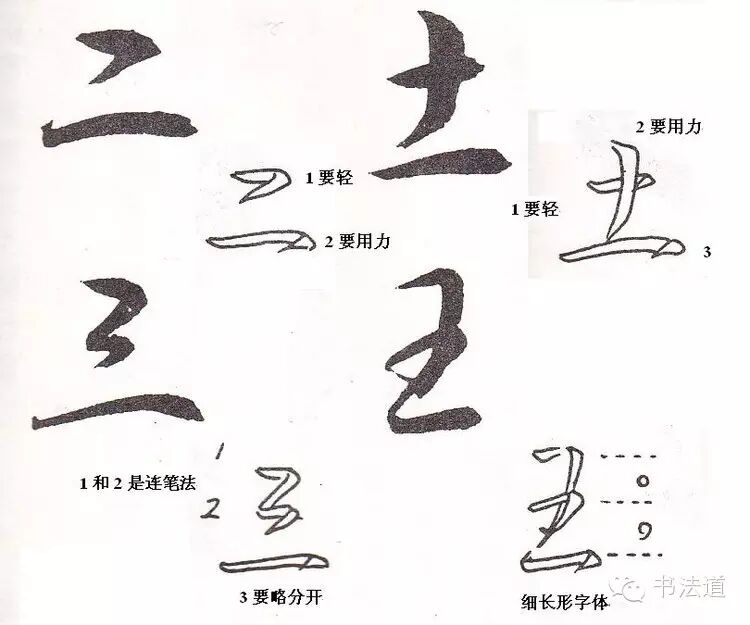 二
土
2要用力
1要轻
2要用力
1要轻
土
3
三
王
1和2是连笔法
1
2
三
王
3要略分开
细长形字体
书法道